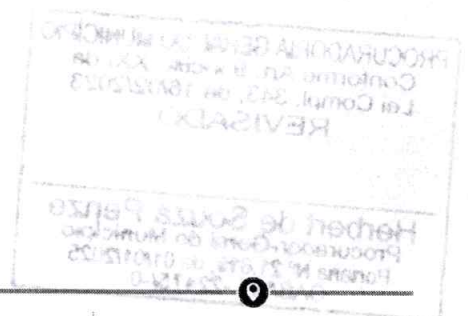 PROCURADORIA GERAL DO MUNICÍPIO
Conforme Art. 9
Lei Compl. 343, de 16/02/2023
REVISADO
Herbert de Souza Penze
Procurador-Geral do Município
Portaria Nº 21 de 01/01/2025